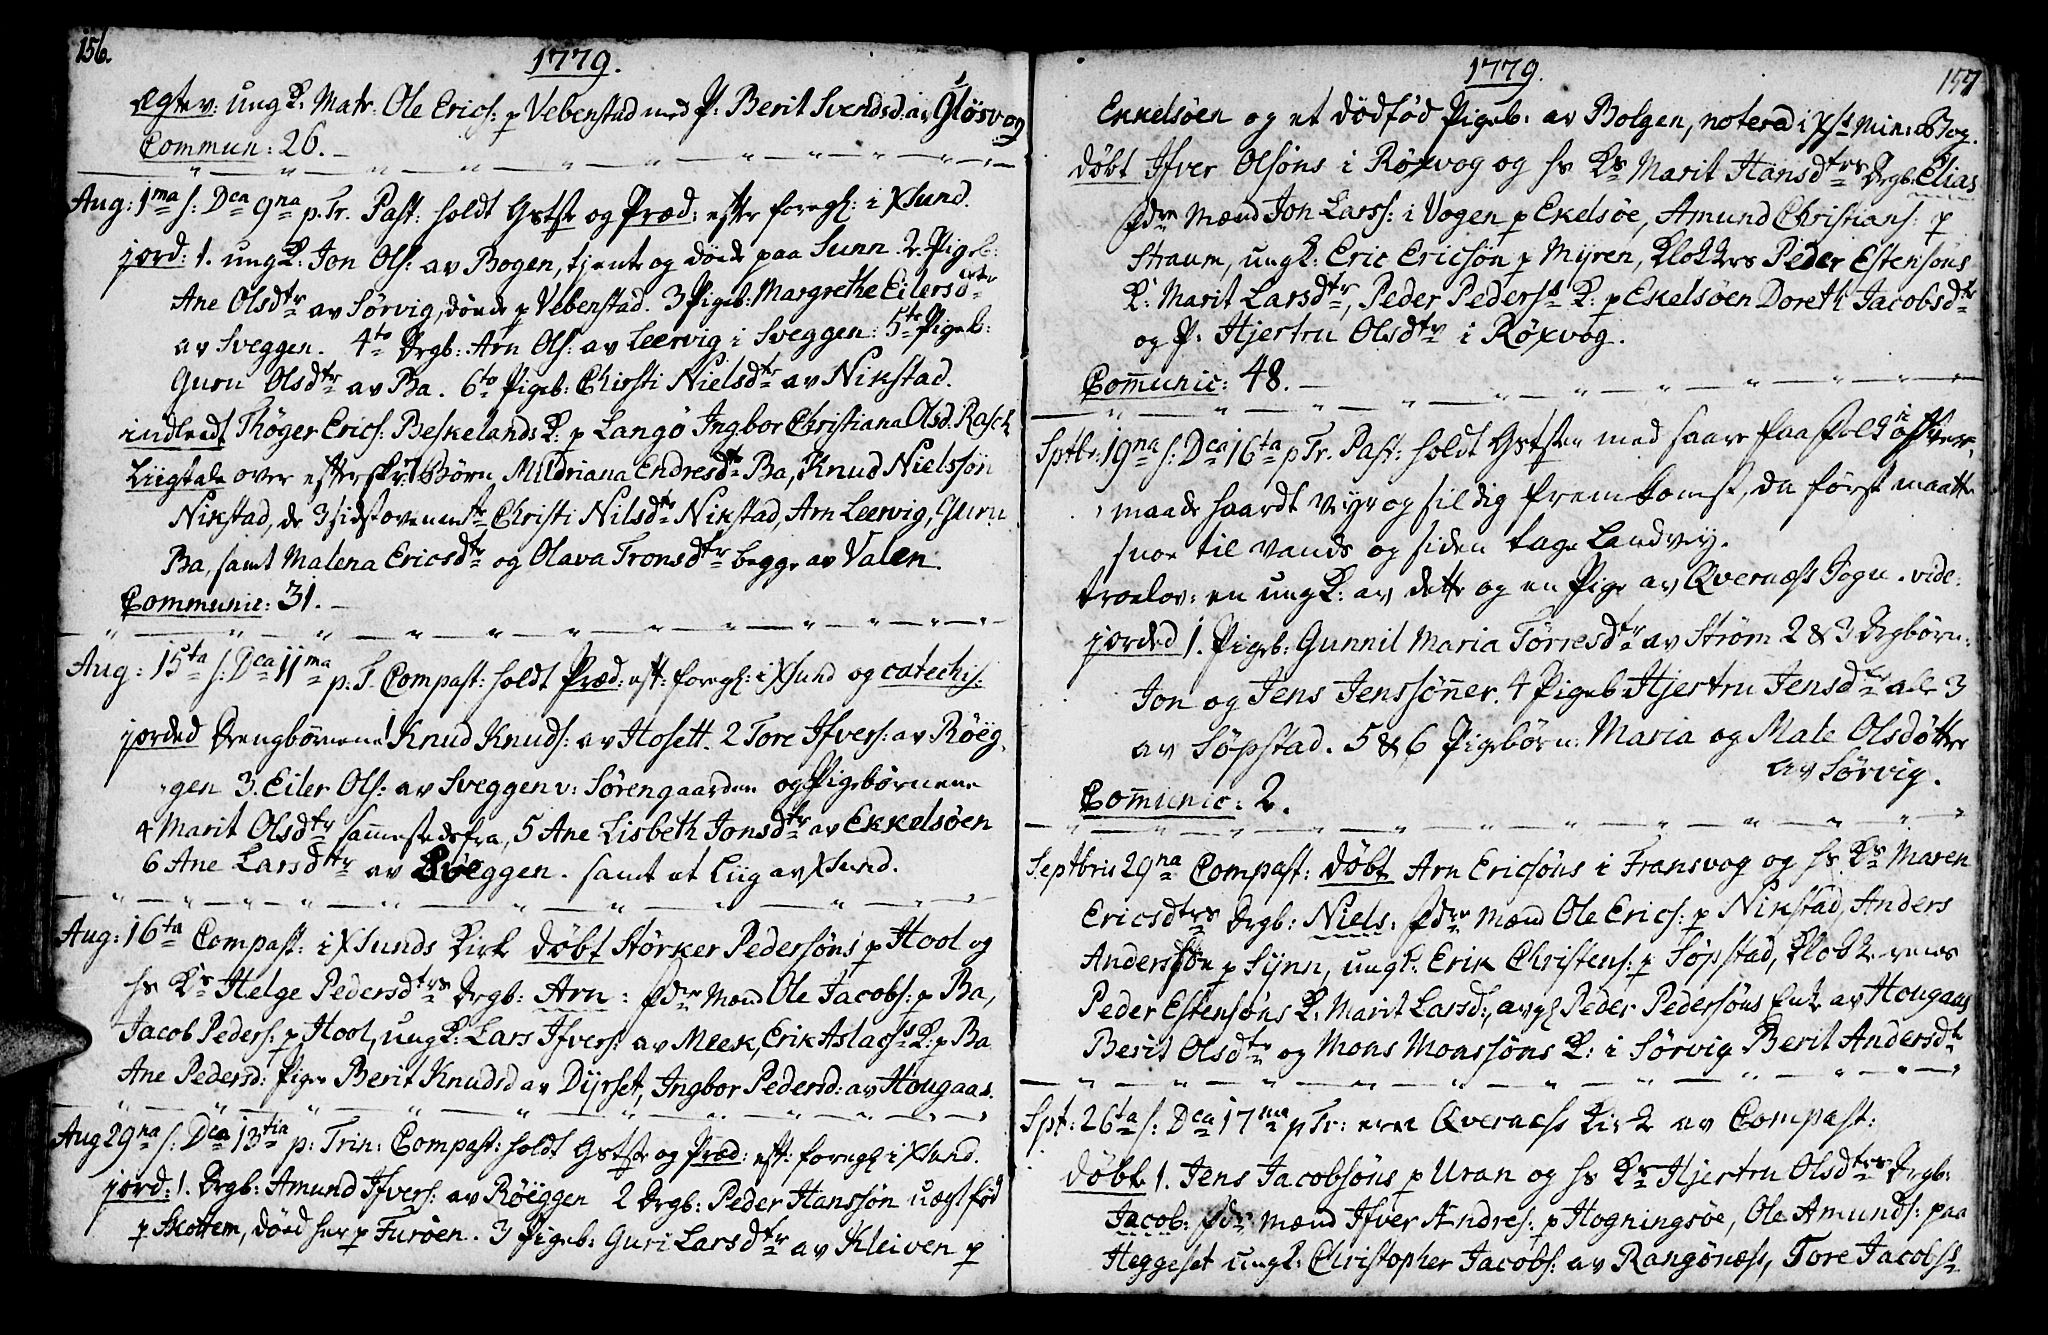 156.
1779.
Ægtev: ungK: Matr: Ole Erics: p Vebenstad med P: Berit Svendsd: av Gløsvog
Commun: 26.
Aug: 1ma s: Dca 9na p. Tr. Past: holdt Gstst og Præd: efter foregl: i Xsund.
jord: 1. ungK: Jon Ols: av Bogen, tjente og døde paa Sunn. 2. Pigeb:
Ane Olsdtr av Sørvig, døde p Vebenstad. 3 Pigeb: Margrethe Eilersdtr
av Sveggen. 4to Drgb: Arn Ols: av Leervig i Sveggen: 5te Pigeb:
Guru Olsdtr av Ba. 6to Pigeb: Christi Nielsdtr av Nikstad.
indledt Thøger Erics: Beskelands K: p Langø Ingbor Christiana Olsd. Rasch
Liigtale over efterskr: Børn Mildriana Endresdtr Ba, Knud Nielssøn
Nikstad, de 3 sidst ovennte Christi Nilsdtr Nikstad, Arn Leervig, Guru
Ba, samt Malena Ericsdtr og Olava Tronsdtr begge av Valen.
Communic: 31.
Aug: 15ta s: Dca 11ma p. T. Compast: holdt Præd: eft: foregl: i Xsund og catechis:
jorded Drengbørnene 1 Knud Knuds: av Hosett. 2 Tore Ifvers: av Røeg,
gen 3. Eiler Ols: av Sveggen v: Sørengaarden og Pigebørnene
4 Marit Olsdtr sammestedsfra, 5 Ane Lisbeth Jonsdtr av Ekkelsøen
6 Ane Larsdtr av Sveggen. samt et Liig av Xsund.
Aug: 16ta Compast: i Xsunds Kirke døbt Størker Pedersøns p Hool og
hs Ks Helge Pedersdtrs Drgb: Arn: fdre Mænd Ole Jacobs: p Ba,
Jacob Peders: p Hool, ungK: Lars Ifvers: av Meek, Erik Aslacss K: p Ba
Ane Pedersd: Pige Berit Knudsd av Dyrset, Ingbor Pedersd: av Hougaas.
Aug 29na s: Dca 13tia p: Trin: Compast: holdt Gstste og Præd: eft: foregl i Xsund.
jord: 1. Drgb: Amund Ifvers: av Røeggen 2 Drgb: Peder Hanssøn uægtfød
p Skottem, død her p Furøen. 3 Pigeb: Guri Larsdtr av Kleiven p
1779.
157
Ekkelsøen og et dødfød Pigeb: av Bolgen, noterd i Xsts Min: Bog.
døbt Ifver Olsøns i Røxvog og hs Ks Marit Hansdtrs Drgb: Elias
fdre Mænd Jon Larss: i Vogen p Ekelsøe, Amund Christians: p
Straum, ungK: Eric Ericsøn p Myren, Klokkers Peder Estensøns
K: Marit Larsdtr, Peder Pederss K: p Ekelsøen Doreth Jacobsdtr
og P. Hjertru Olsdtr i Røxvog.
Communic: 48.
Sptbr: 19na s: Dca 16ta p Tr. Past: holdt Gststen med faare paa folk i ofver-
maade haardt Veyr og sildig fremkomst, da først maatte
snoe til Vands og siden tage Landvey.
troelov: en ungK: av dette og en Pige av Qvernæss Sogn. vide:
jorded 1. Pigeb: Gunnil Maria Tørresdtr av Strøm 2 & 3 Drgbørn:
Jon og Jens Jenssønner. 4 Pigeb Hjertru Jensdtr alle 3
av Søpstad. 5 & 6 Pigebørn: Maria og Male Olsdøttre
av Sørvig.
Communic: 2.
Septbris 29na Compast: døbt Arn Ericsøns i Fransvog og hs Ks Maren
Ericsdtrs Drgb: Niels: fdre Mænd Ole Erics: p Nikstad, Anders
Anderssøn p Synn, ungK: Erik Christens: p Søpstad, Klokkerens
Peder Estensøns K: Marit Larsd:, avgl Peder Pedersøns Enke av Hougaas
Berit Olsdtr og Mons Monssøns K: i Sørvig Berit Andersdtr
Spt: 26ta s: Dca 17ma p Tr: ved Qvernæss Kirke av Compast:
døbt 1. Jens Jacobsøns p Uran og hs Ks Hjertru Olsdtrs Drgb:
Jacob: fdre Mænd Ifver Andres: p Hogningsøe, Ole Amunds: paa
Heggeset ungK: Christopher Jacobs: av Rangønæss, Tore Jacobss